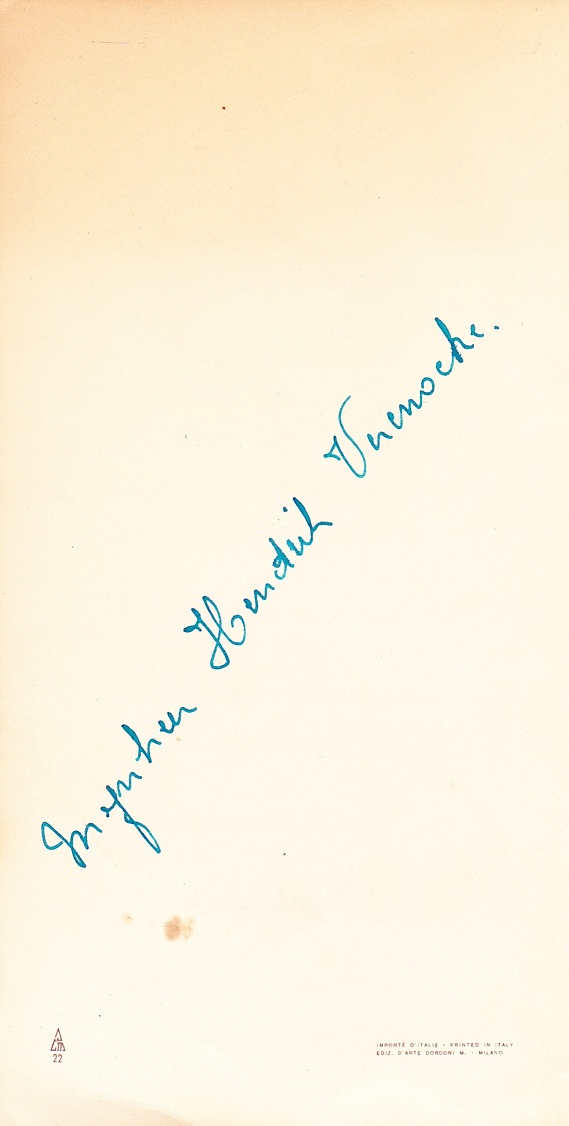 Mynheer Hendrik
22
IMPORTÉ D'ITALIE - PRINTED IN ITALY
EDIZ. D'ARTE DORDONI M. - MILANO